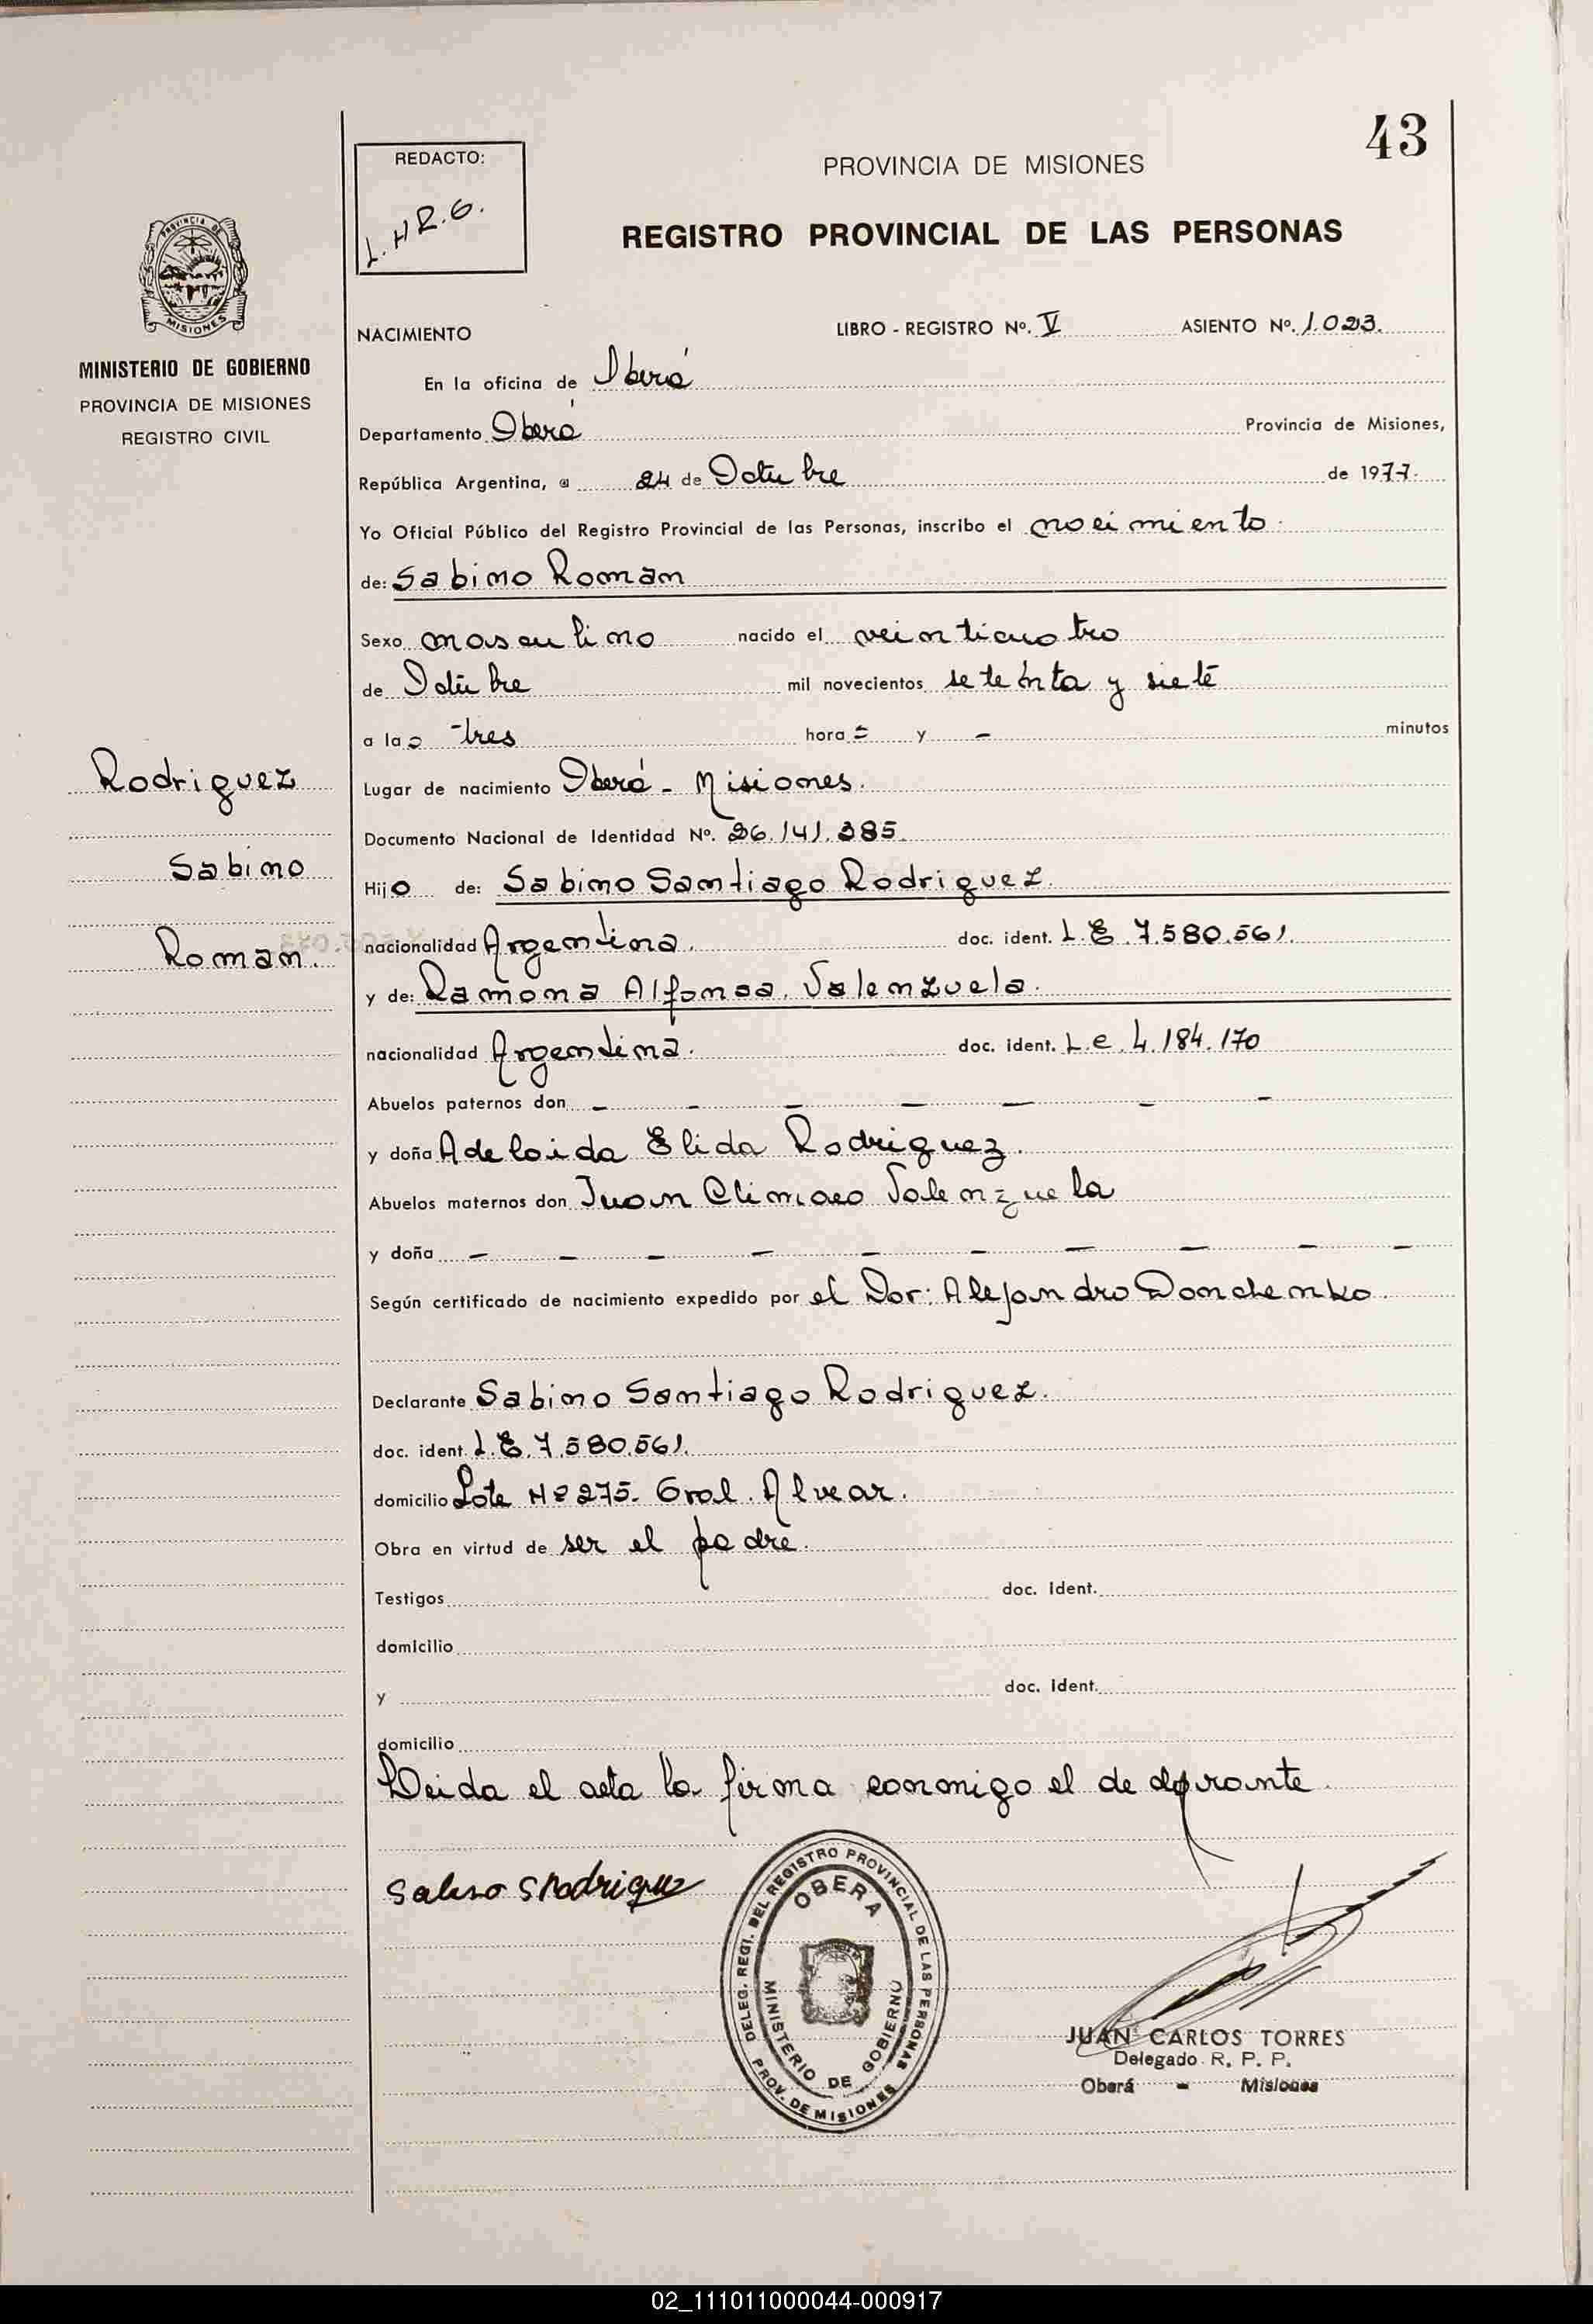 43
REDACTO:
L.HR.G.
PROVINCIA DE MISIONES
REGISTRO PROVINCIAL DE LAS PERSONAS
PROVINCIA DE MISIONES
MINISTERIO DE GOBIERNO
PROVINCIA DE MISIONES
REGISTRO CIVIL
NACIMIENTO LIBRO - REGISTRO Nº. V ASIENTO Nº. 1.023.
En la oficina de Oberá
Departamento Oberá Provincia de Misiones,
República Argentina, a 24 de Octubre de 1977.
Yo Oficial Público del Registro Provincial de las Personas, inscribo el nacimiento
de: Sabino Roman
Sexo masculino nacido el veinticuatro
de Octubre mil novecientos setenta y siete
a las tres hora = y - minutos
Rodriguez
Sabino
Roman.
Lugar de nacimiento Oberá - Misiones.
Documento Nacional de Identidad Nº. 26.141.385.
Hijo de: Sabino Santiago Rodriguez.
nacionalidad Argentina. doc. ident. L.E. 7.580.561.
y de: Ramona Alfonsa Valenzuela.
nacionalidad Argentina. doc. ident. L.e. 4.184.170
Abuelos paternos don - - - - - - -
y doña Adelaida Elida Rodriguez.
Abuelos maternos don Juan Climaco Valenzuela
y doña - - - - - - - - - -
Según certificado de nacimiento expedido por el Dor: Alejandro Donchenko.
Declarante Sabino Santiago Rodriguez.
doc. ident. L.E. 7.580.561.
domicilio Lote Nº 275. Gral. Alvear.
Obra en virtud de ser el padre.
Testigos doc. ident.
domicilio
y doc. ident.
domicilio
Leida el acta la firma conmigo el declarante.
Sabino S Rodriguez
DELEG. REGI. DEL REGISTRO PROVINCIAL DE LAS PERSONAS
OBERA
MINISTERIO DE GOBIERNO
PROV. DE MISIONES
JUAN CARLOS TORRES
Delegado R. P. P.
Oberá - Misiones
02_111011000044-000917